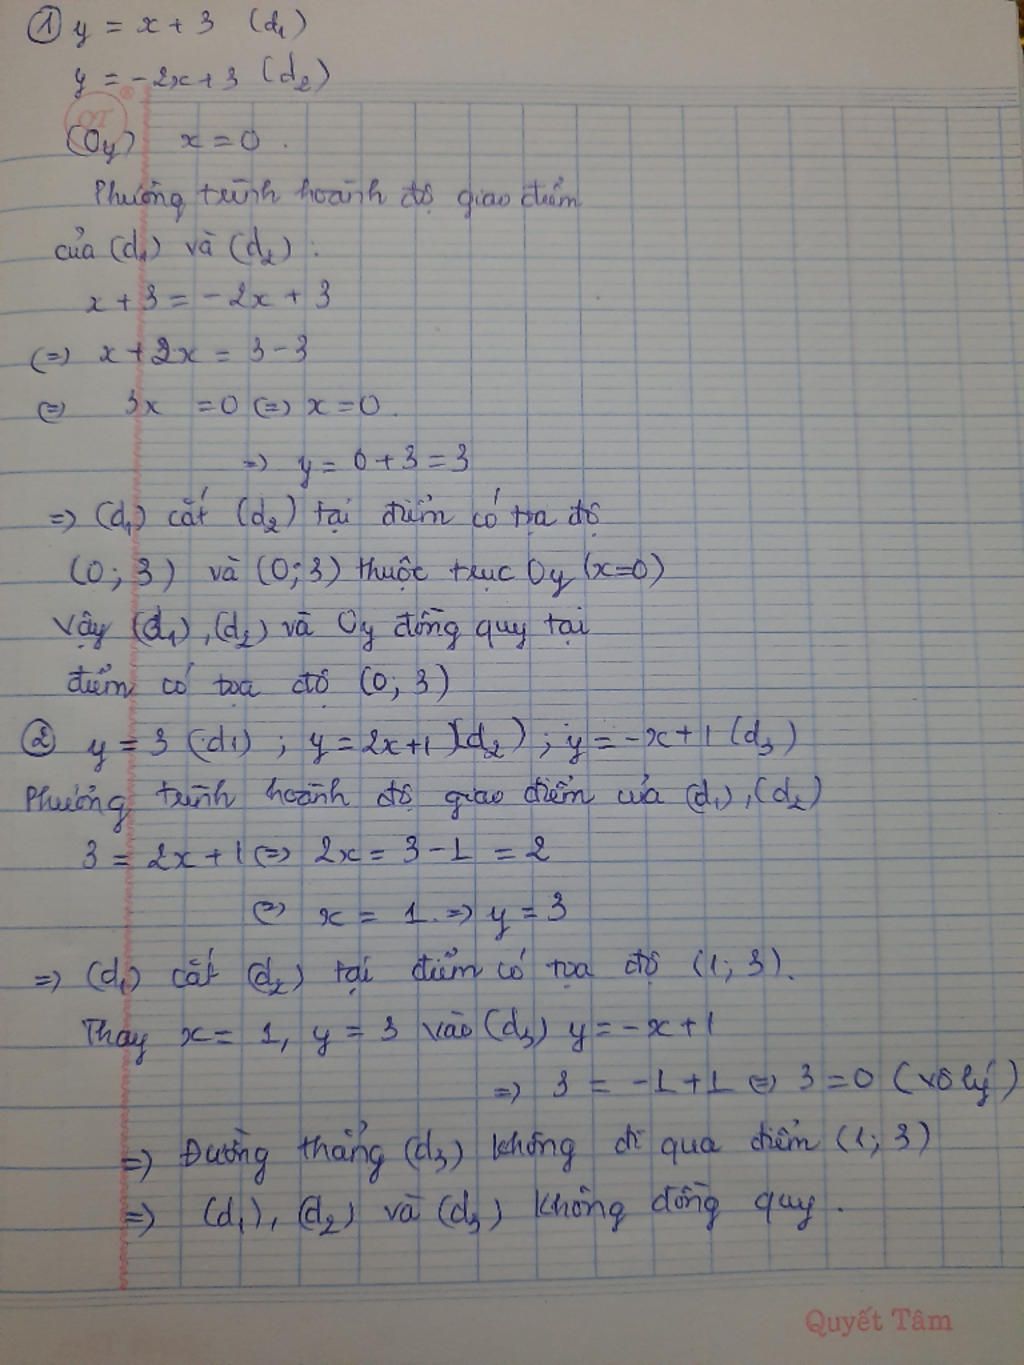 ① y = x + 3 (d₁)
y = -2x + 3 (d₂)
(Oy) x = 0.
Phương trình hoành độ giao điểm
của (d₁) và (d₂) :
x + 3 = -2x + 3
(=) x + 2x = 3 - 3
(=) 3x = 0 (=) x = 0.
=) y = 0 + 3 = 3
=) (d₁) cắt (d₂) tại điểm có tọa độ
(0; 3) và (0; 3) thuộc trục Oy (x=0)
Vậy (d₁), (d₂) và Oy đồng quy tại
điểm có tọa độ (0; 3)
② y = 3 (d₁) ; y = 2x+1 (d₂) ; y = -x+1 (d₃)
Phương trình hoành độ giao điểm của (d₁), (d₂)
3 = 2x + 1 (=) 2x = 3 - 1 = 2
(=) x = 1. =) y = 3
=) (d₁) cắt (d₂) tại điểm có tọa độ (1; 3).
Thay x = 1, y = 3 vào (d₃) y = -x + 1
=) 3 = -1 + 1 (=) 3 = 0 (vô lý)
=) Đường thẳng (d₃) không đi qua điểm (1; 3)
=) (d₁), (d₂) và (d₃) không đồng quy.
Quyết Tâm